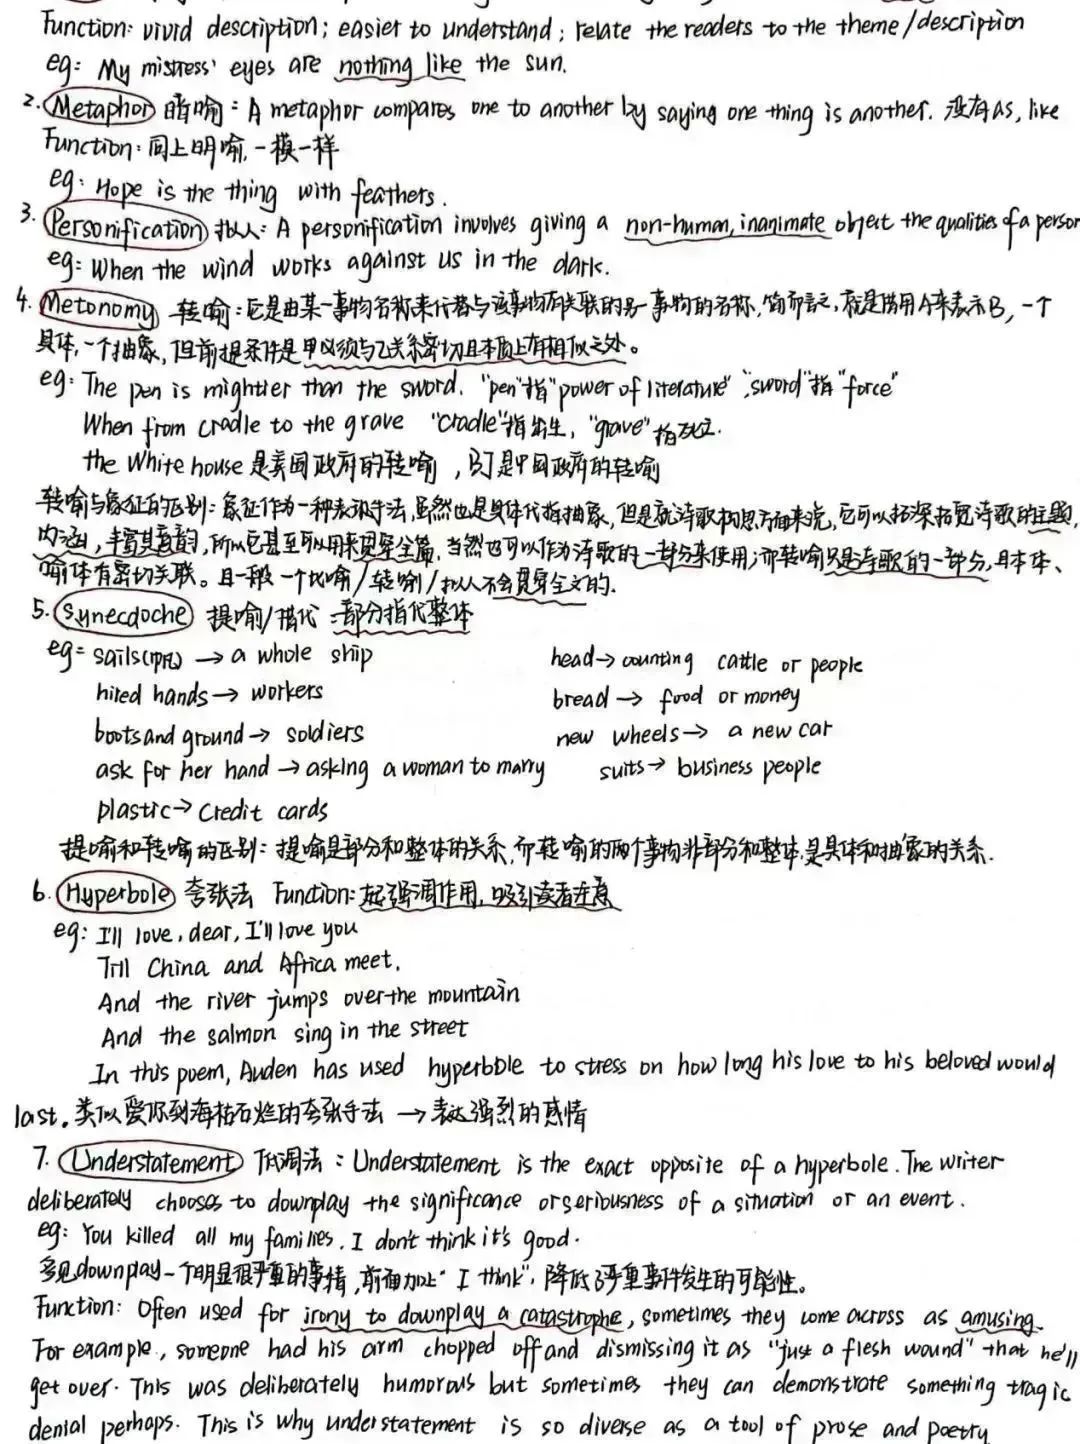 Function: vivid description; easier to understand; relate the readers to the theme/description
eg: My mistress' eyes are nothing like the sun.
2. Metaphor 暗喻: A metaphor compares one to another by saying one thing is another. 没有as, like
Function: 同上明喻, 一模一样
eg: Hope is the thing with feathers.
3. Personification 拟人: A personification involves giving a non-human, inanimate object the qualities of a person
eg: When the wind works against us in the dark.
4. Metonomy 转喻: 它是由某一事物名称来代替与该事物有关联的另一事物的名称, 简而言之, 就是借用A来表示B, 一个
具体, 一个抽象, 但前提条件是甲必须与乙关系密切且本质上有相似之处。
eg: The pen is mightier than the sword. "pen"指"power of literature" ; "sword"指"force"
When from cradle to the grave "cradle"指出生, "grave"指死亡.
the White house 是美国政府的转喻, BJ是中国政府的转喻
转喻与象征的区别: 象征作为一种表现手法, 虽然也是具体代指抽象, 但是就诗歌构思方面来说, 它可以拓深拓宽诗歌的主题,
内涵, 丰富其意韵, 所以它甚至可以用来贯穿全篇, 当然也可以作为诗歌的一部分来使用; 而转喻只是诗歌的一部分, 且本体、
喻体有密切关联。且一般一个比喻/转喻/拟人不会贯穿全文的.
5. Synecdoche 提喻/借代: 部分指代整体
eg: sails(帆) → a whole ship head → counting cattle or people
hired hands → workers bread → food or money
boots and ground → soldiers new wheels → a new car
ask for her hand → asking a woman to marry suits → business people
plastic → credit cards
提喻和转喻的区别: 提喻是部分和整体的关系, 而转喻的两个事物非部分和整体, 是具体和抽象的关系.
6. Hyperbole 夸张法 Function: 起强调作用, 吸引读者注意
eg: I'll love, dear, I'll love you
Till China and Africa meet,
And the river jumps over the mountain
And the salmon sing in the street
In this poem, Auden has used hyperbole to stress on how long his love to his beloved would
last. 类似爱你到海枯石烂的夸张手法 → 表达强烈的感情
7. Understatement 低调法: Understatement is the exact opposite of a hyperbole. The writer
deliberately chooses to downplay the significance or seriousness of a situation or an event.
eg: You killed all my families. I don't think it's good.
多见downplay一个明显很严重的事情, 前面加上"I think", 降低了严重事件发生的可能性。
Function: Often used for irony to downplay a catastrophe, sometimes they come across as amusing.
For example, someone had his arm chopped off and dismissing it as "just a flesh wound" that he'll
get over. This was deliberately humorous but sometimes they can demonstrate something tragic
denial perhaps. This is why understatement is so diverse as a tool of prose and poetry